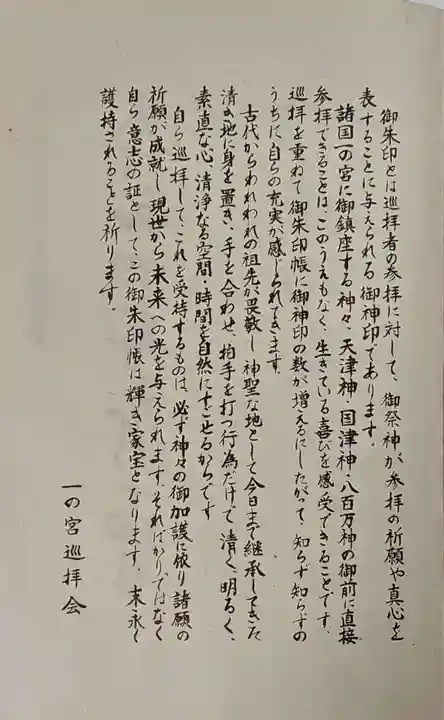 御朱印とは巡拝者の参拝に対して、御祭神が参拝の祈願や真心を
表することに与えられる御神印であります。
諸国一の宮に御鎮座する神々・天津神・国津神・八百万神の御前に直接
参拝できることは、このうえもなく、生きている喜びを感受できることです。
巡拝を重ねて御朱印帳に御神印の数が増えるにしたがって、知らず知らずの
うちに自らの充実が感じられてきます。
古代からわれわれの祖先が畏敬し神聖な地として今日まで継承してきた
清い地に身を置き、手を合わせ、拍手を打つ行為だけで清く、明るく、
素直な心、清浄なる空間・時間を自然にすごせるからです
自ら巡拝して、これを受持するものは、必ず神々の御加護に依り諸願の
祈願が成就し現世から未来への光を与えられます。そればかりではなく
自ら意志の証として、この御朱印帳は輝き家宝となります。末永く
護持されることを祈ります。
一の宮巡拝会